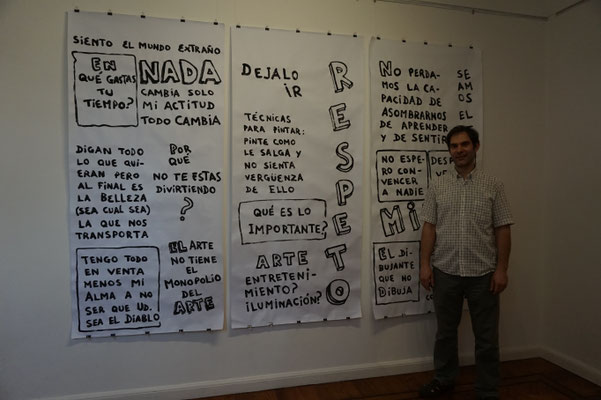 SIENTO EL MUNDO EXTRAÑO
EN
QUÉ GASTAS
TU
TIEMPO?
NADA
CAMBIA SOLO
MI ACTITUD
TODO CAMBIA
DIGAN TODO
LO QUE QUI-
ERAN PERO
AL FINAL ES
LA BELLEZA
(SEA CUAL SEA)
LA QUE NOS
TRANSPORTA
POR
QUÉ
NO TE ESTAS
DIVIRTIENDO
?
TENGO TODO
EN VENTA
MENOS MI
ALMA A NO
SER QUE UD.
SEA EL DIABLO
EL ARTE
NO TIENE
EL
MONOPOLIO
DEL
ARTE
DEJALO
IR
RESPETO
TÉCNICAS
PARA PINTAR:
PINTE COMO
LE SALGA Y
NO SIENTA
VERGÜENZA
DE ELLO
QUÉ ES LO
IMPORTANTE?
ARTE
ENTRETENI-
MIENTO?
ILUMINACIÓN?
NO PERDA-
MOS LA CA-
PACIDAD DE
ASOMBRARNOS
DE APRENDER
Y DE SENTIR
SE
AM
OS
EL
NO ESPE-
RO CON-
VENCER
A NADIE
MI
EL DI-
BUJANTE
QUE NO
DIBUJA